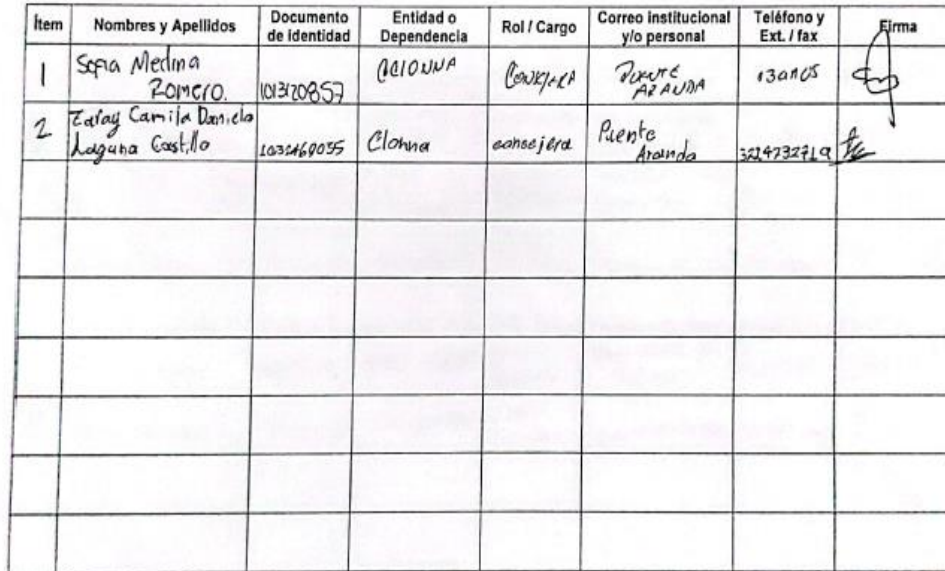 Ítem Nombres y Apellidos Documento de identidad Entidad o Dependencia Rol / Cargo Correo institucional y/o personal Teléfono y Ext. / fax Firma
1 Sofia Medina Romero. 1013120857 CCIONNA PUENTE ARANDA 13 años
2 Camila Daniela Laguna Castillo Clonna consejera Puente Aranda 3224732719